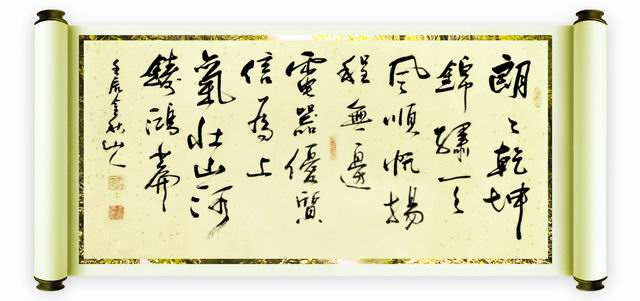 朗々乾坤
錦繡天
風順帆揚
程無邊
電器優質
信為上
氣壯山河
鑄鴻篇
壬辰金秋山人